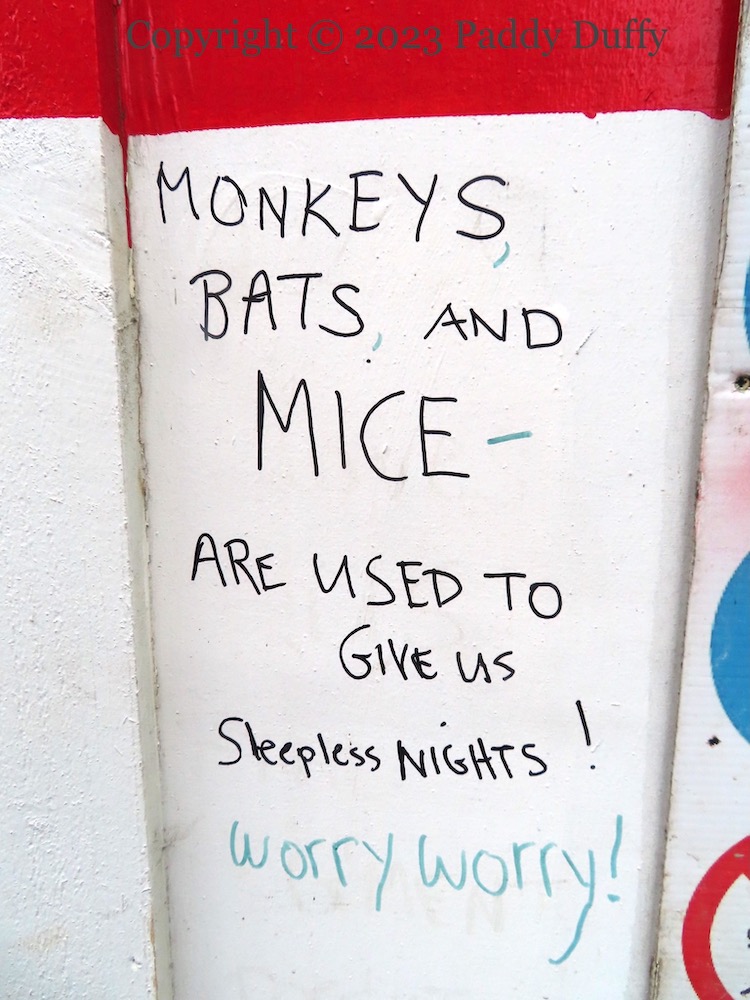 Copyright © 2023 Paddy Duffy
MONKEYS,
BATS, AND
MICE -
ARE USED TO
GIVE US
Sleepless NIGHTS !
worry worry!